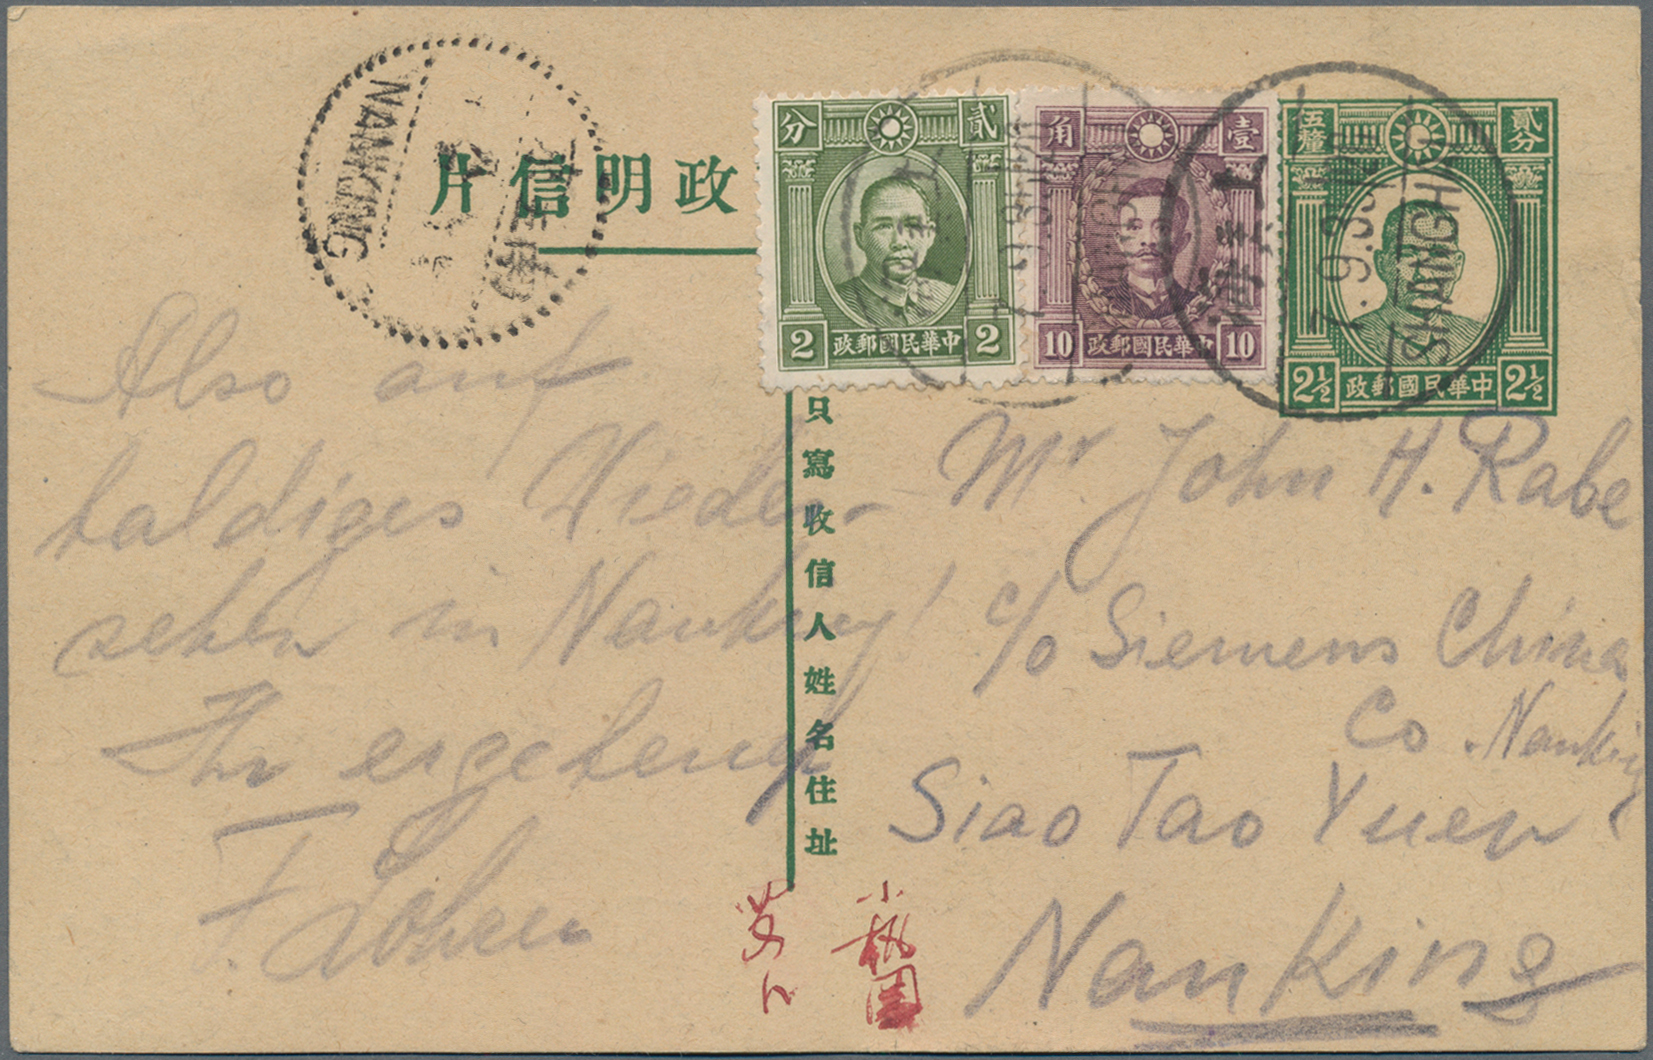 政明信片
NANKING
南京
分 貳
2 中華民國郵政 2
角 壹
10 中華民國郵政 10
五釐 貳分
2½ 中華民國郵政 2½
上海
7.9.33
SHANGH
只寫收信人姓名住址
Also auf
baldiges Wieder-
sehen in Nanking!
Ihr ergebener
Mr John H. Rabe
c/o Siemens China
Co. Nanking
Siao Tao Yuen
Nanking
小桃園
艾